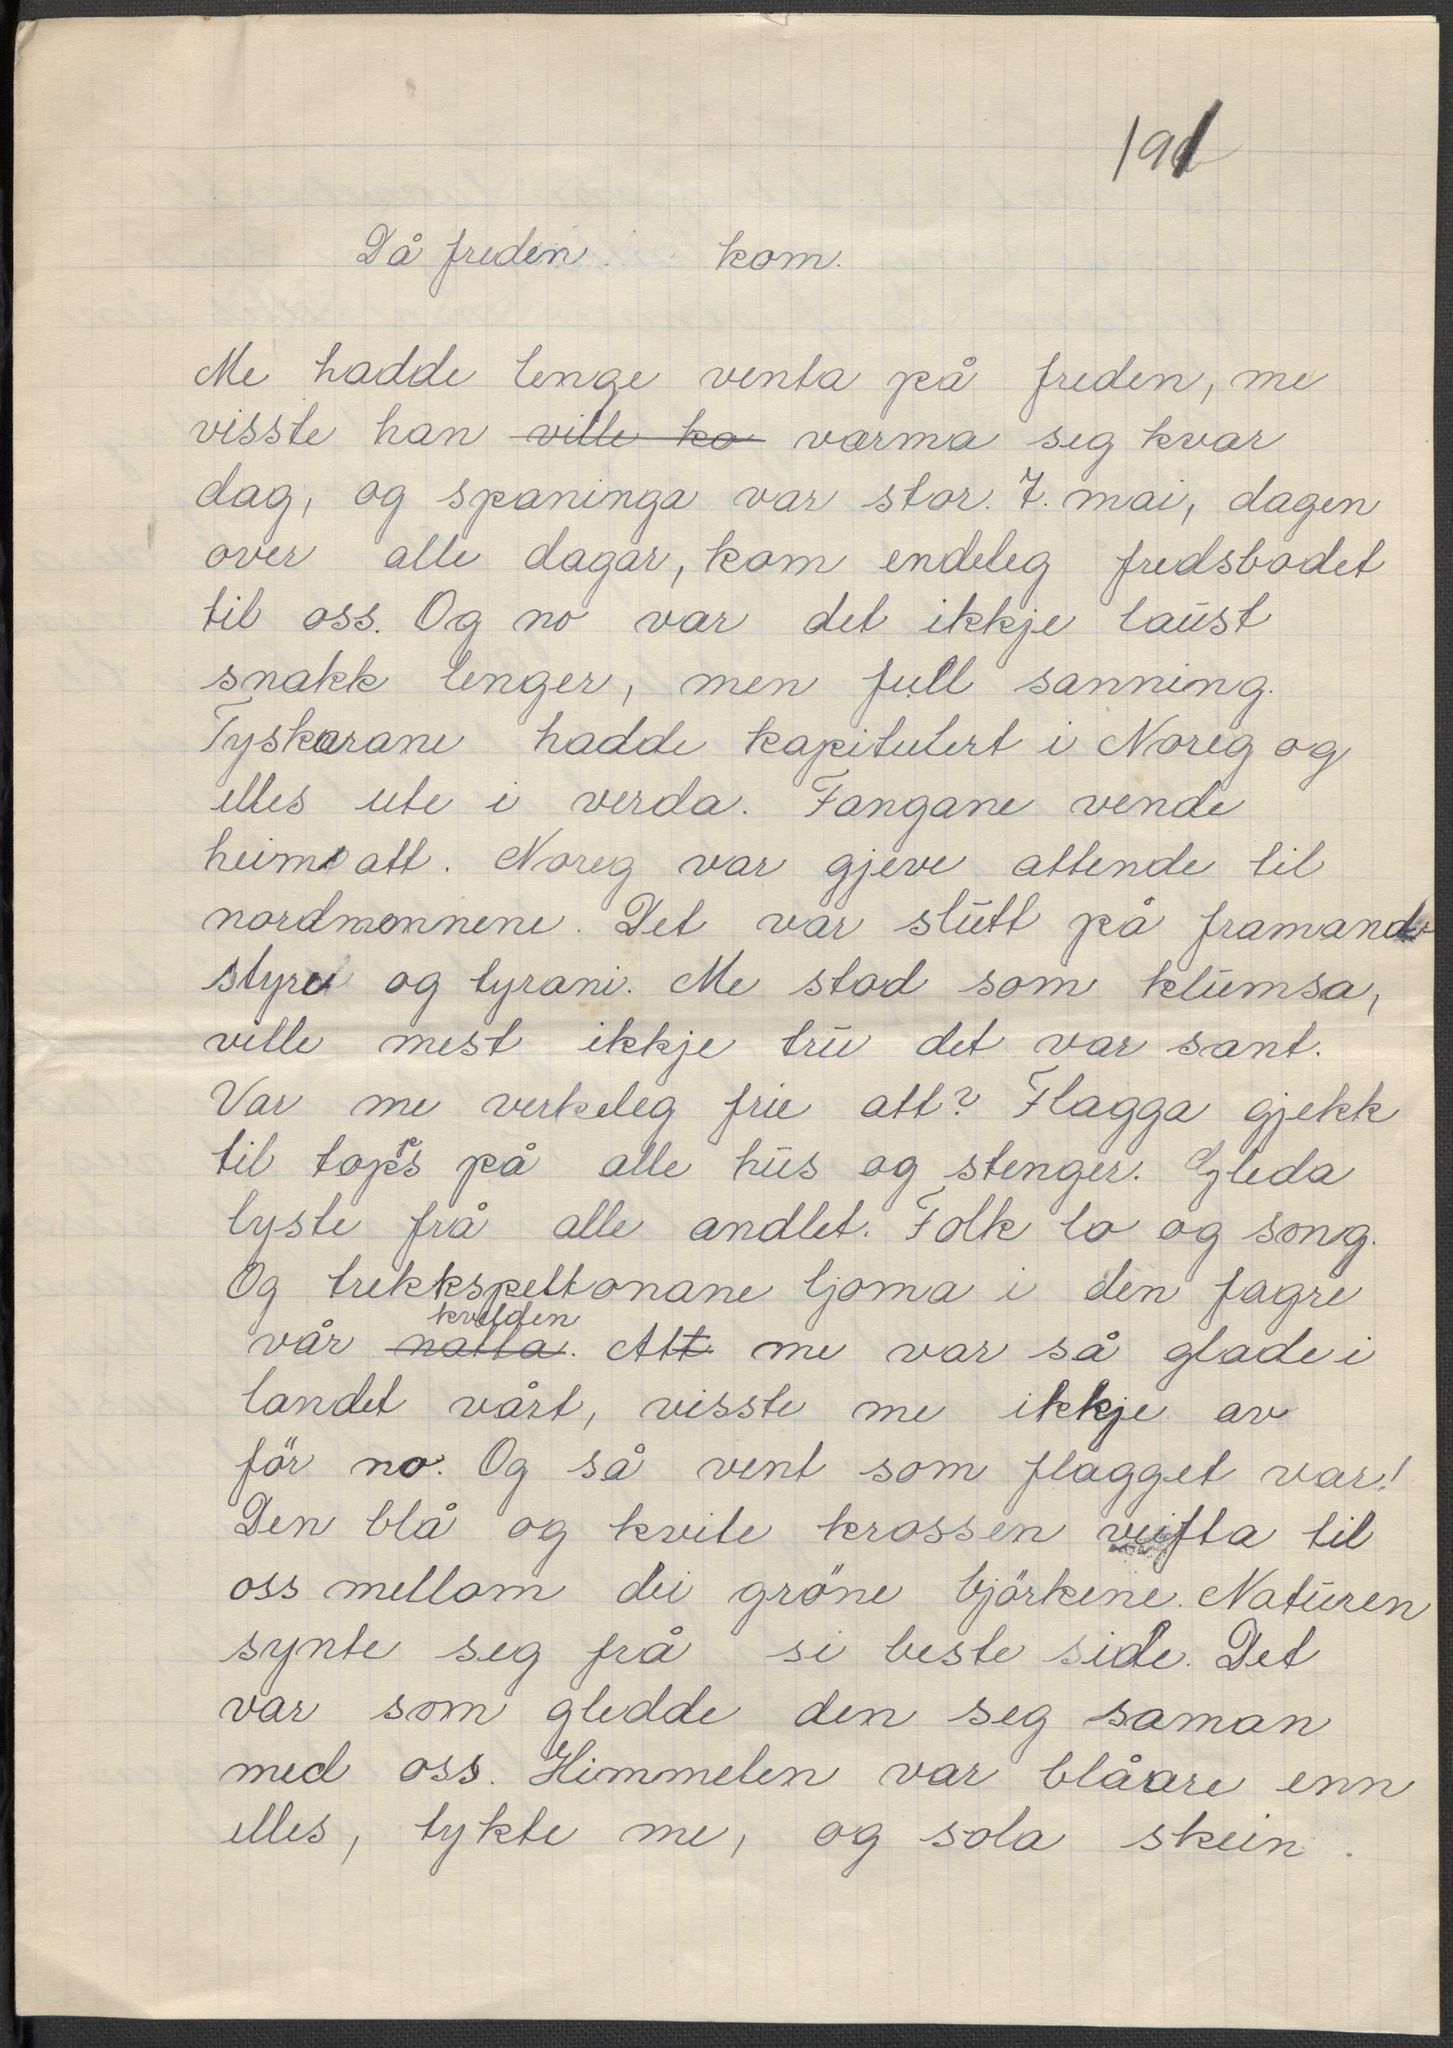 191
Då freden kom.
Me hadde lenge venta på freden, me
visste han ville ko varma seg kvar
dag, og spaninga var stor. 7. mai, dagen
over alle dagar, kom endeleg fredsbodet
til oss. Og no var det ikkje laust
snakk lenger, men full sanning.
Tyskarane hadde kapitulert i Noreg og
elles ute i verda. Fangane vende
heim att. Noreg var gjeve attende til
nordmennene. Det var slutt på framand
styre og tyrani. Me stod som klumsa,
ville mest ikkje tru det var sant.
Var me verkeleg frie att? Flagga gjekk
til topps på alle hus og stenger. Gleda
lyste frå alle andlet. Folk lo og song.
Og trekkspeltonane ljoma i den fagre
kvelden
vår natta. At me var så glade i
landet vårt, visste me ikkje av
för no. Og så vent som flagget var!
Den blå og kvite krossen veifta til
oss mellom dei gröne björkene. Naturen
synte seg frå si beste side. Det
var som gledde den seg saman
med oss. Himmelen var blåare enn
elles, tykte me, og sola skein.